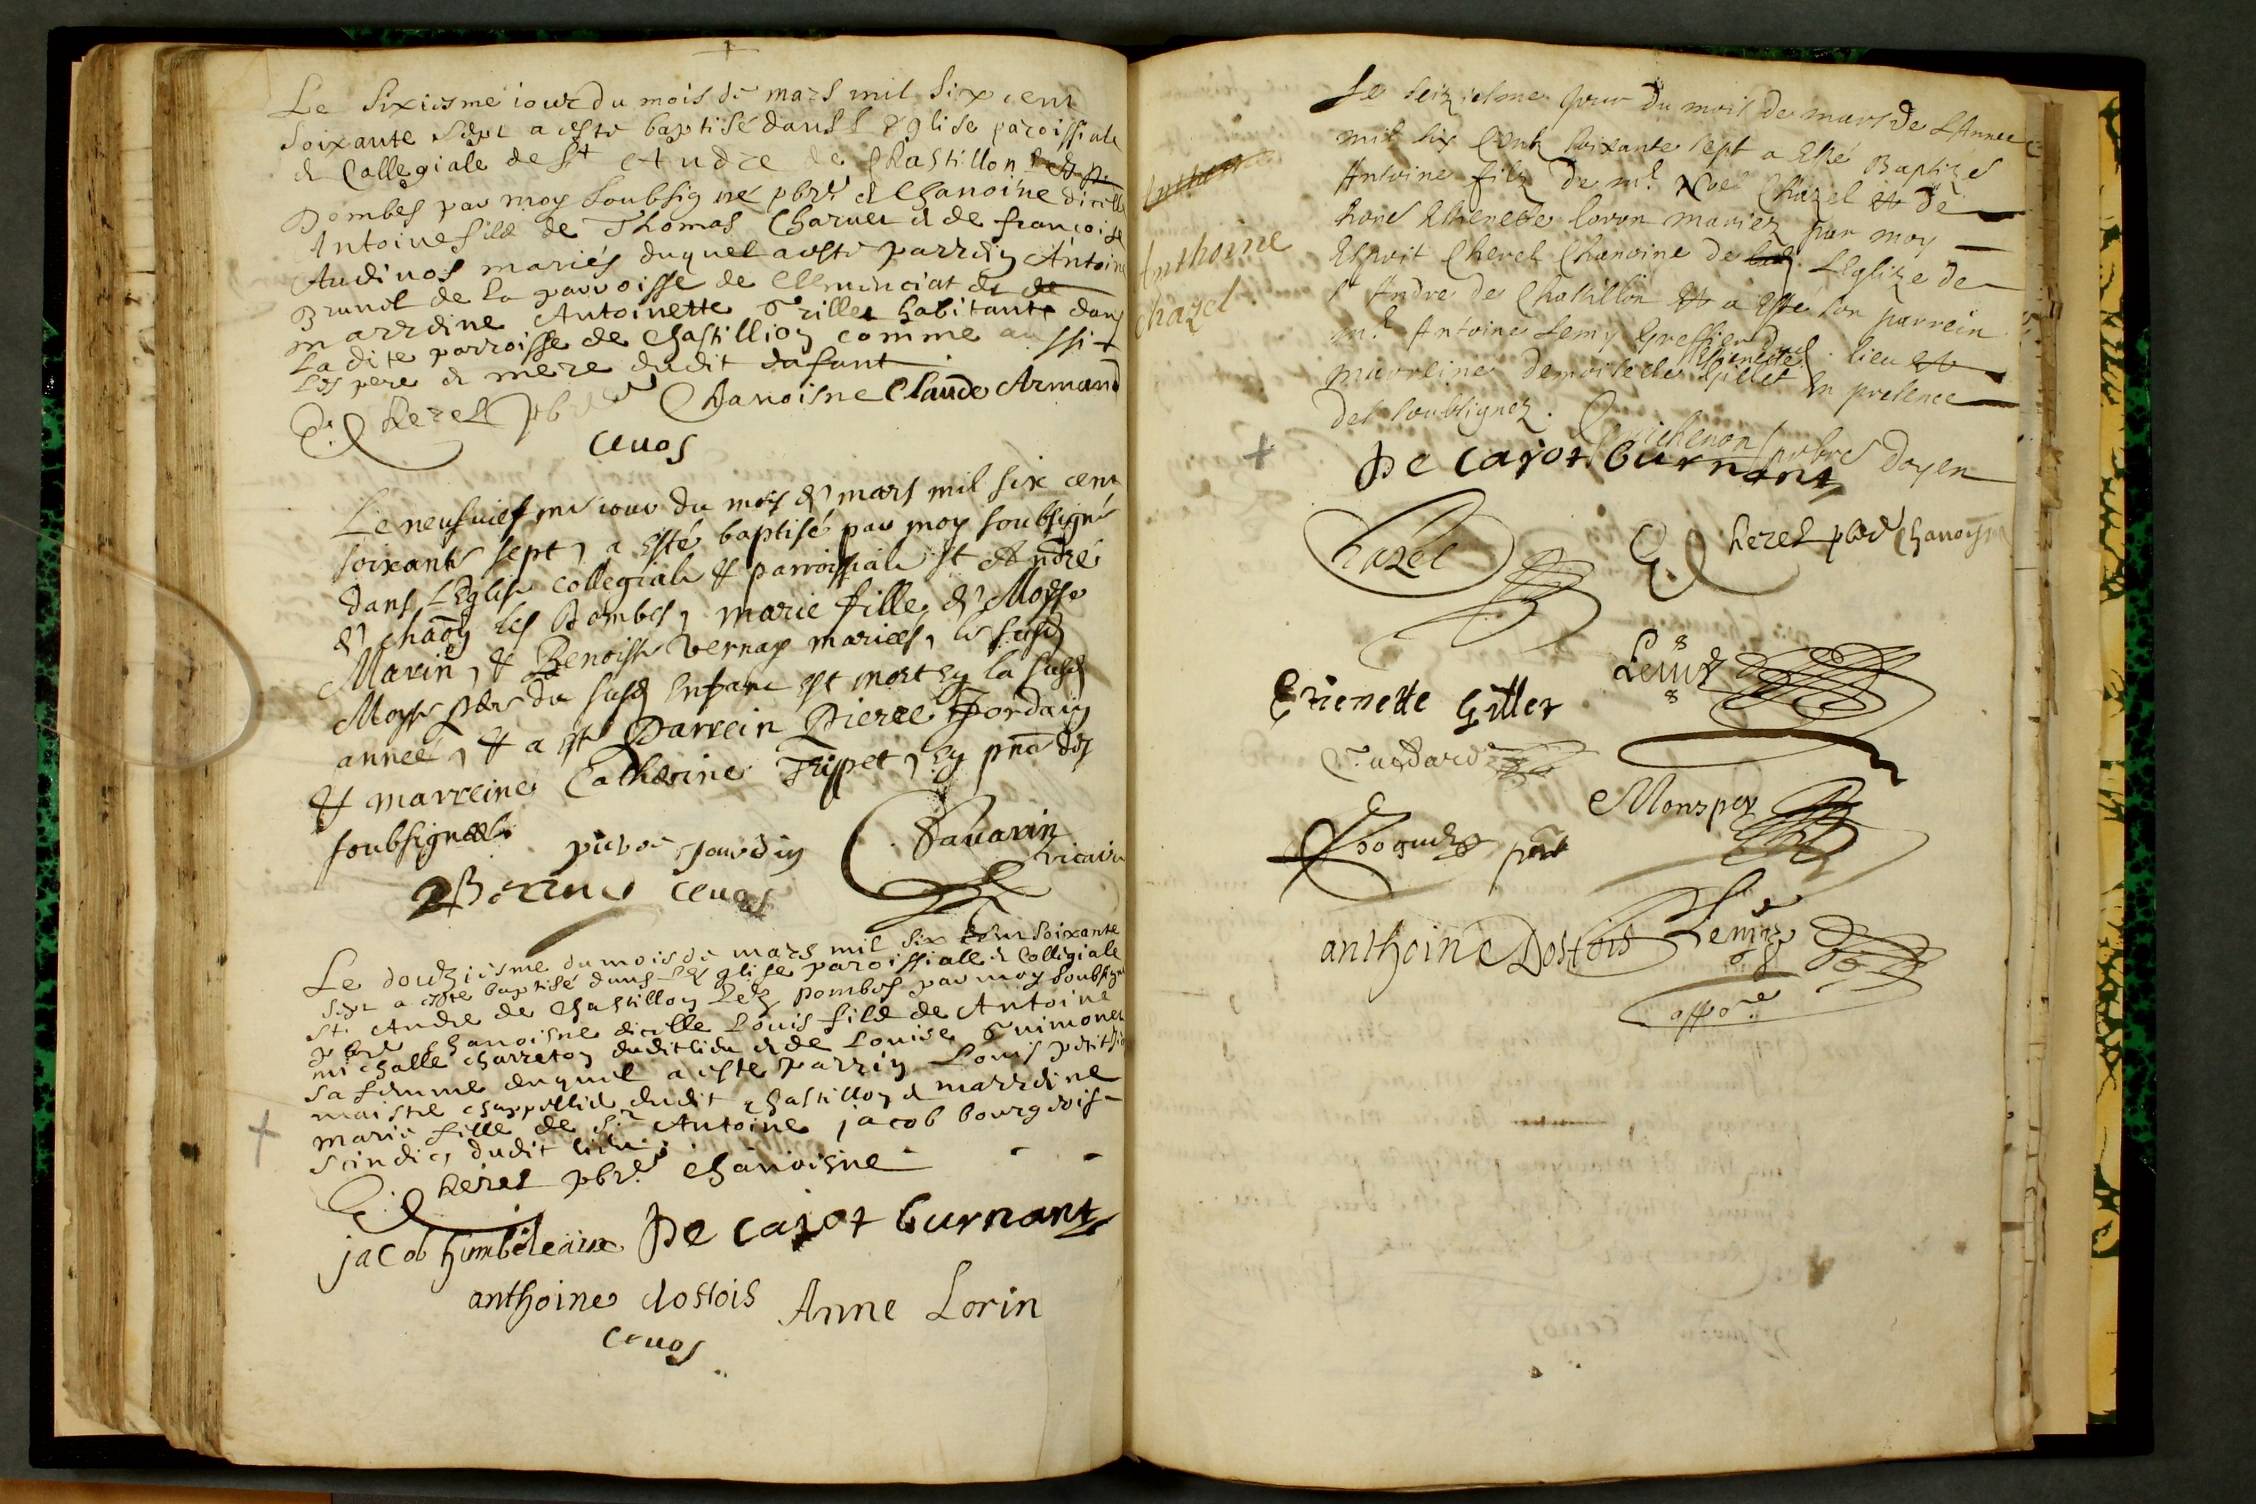 Le sixiesme iour du mois de mars mil six cent
soixante sept a esté baptisé dans l'Eglise paroissiale
& Collegiale de St Andre de Chastillon
Dombes par moy soubsigné pbre & Chanoine dicelle
Antoine filz de Thomas Charuet & de françoise
Audinos mariés duquel a esté parrein Antoine
Brunet de la parroisse de Cleminciat &
marreine Antoinette Grillet habitante dans
la dite parroisse de Chastillion comme aussi
les pere & mere dudit enfant
E. Cheret pbre Chanoisne Claude Armand
Cuuos
Le neufuiesme iour du mois de mars mil six cent
soixante sept, a esté baptisé par moy soubsigné
dans l'Eglise collegiale & parroissiale st André
de chaōn les Dombes, marie fille de Moyse
Marin, & Benoiste Vernay mariés, le susd
Moyse pere du susd Enfant est mort en la susd
année, & a esté Parrein Pierre Jordain
& marreine Catherine Trippet, en pnce des
soubsignes
pierre Jourdin Sauarin vicaire
Cuuos
Le douziesme du mois de mars mil six cent soixante
sept a esté baptisé dans l'Esglise paroissialle & Collegiale
St. Andre de Chastillon Lez Dombes par moy soubsigné
pbre Chanoisne dicelle Louis filz de Antoine
michalle charreton dudit lieu & de Louise Guimonet
sa femme duquel a esté parrin Louis petit
maistre chappellier dudit Chastillon & marreine
marie fille de Sr Antoine jacob bourgeois
scindic dudit lieu
E. Cheret pbre Chanoisne
jacob humbeleaire De cajot burnant
anthoine dostois Anne Lorin
Cuuos
Anthoine
chazel
Le seiziesme jour du mois de mars de L'Annee
mil six Cents soixante sept a Esté Baptizé
Antoine filz de mr. Noel Chazel & de
hone Ethenette loron mariez par moy
Esprit Cheret Chanoine de L'Eglize de
St Andre de Chatillon & a Esté son parrein
mr. Antoine Lemy Greffier dud. lieu &
marreine Demoiselle Estienette Gillet En presence
des soubsignez. Guichenon pbre Doyen
De cajot burnant
Chazel
E. Cheret pbre Chanoyne
Etienette Gillet
Lemy
Tandard
Monspey
anthoine Dostois
Lemy